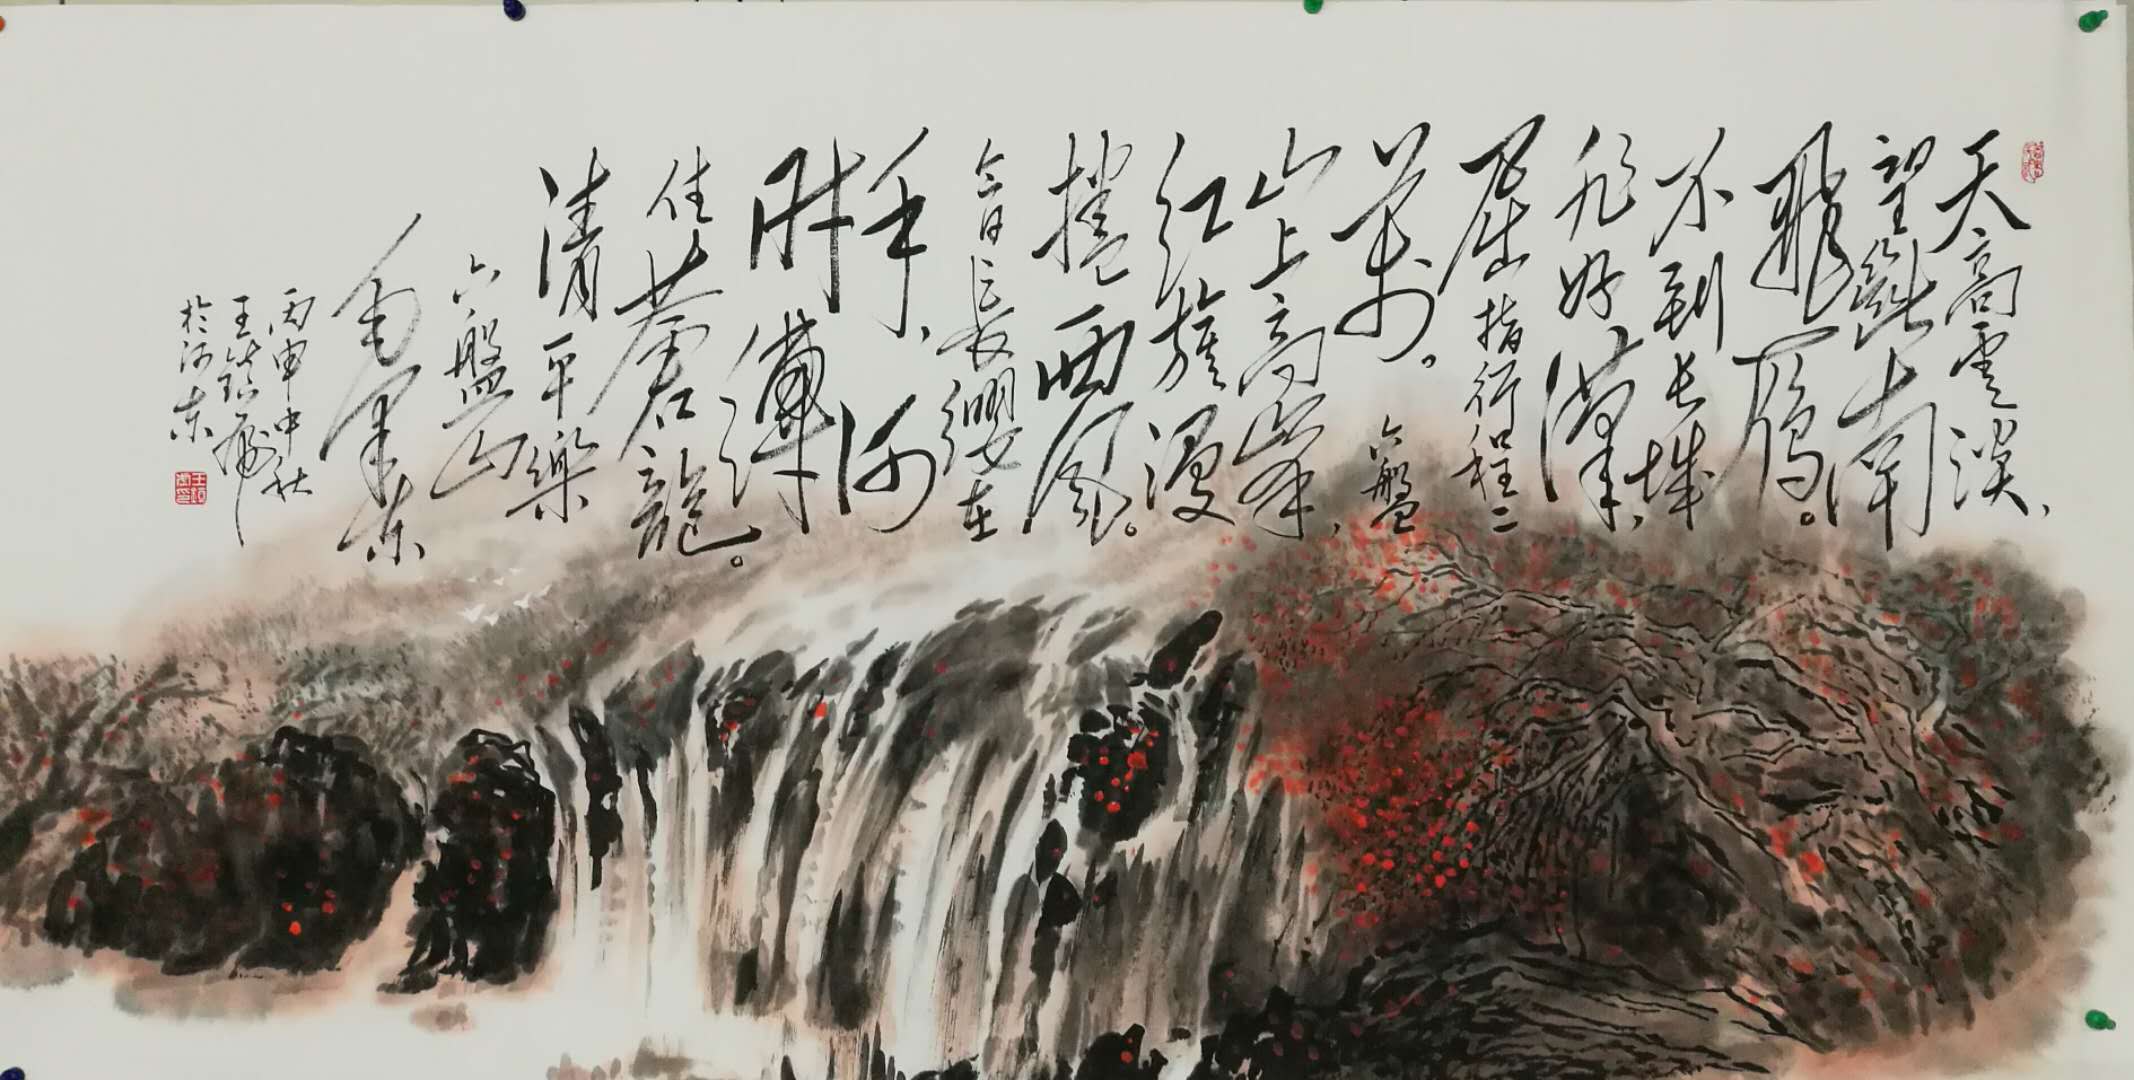 天高雲淡、
望斷南
飛雁。
不到長城
非好漢、
屈指行程二
萬。六盤
山上高峰、
红旗漫
捲西風。
今日長纓在
手、何
時縛
住蒼龍。
清平樂
六盤山
毛泽东
丙申中秋
王
於河东